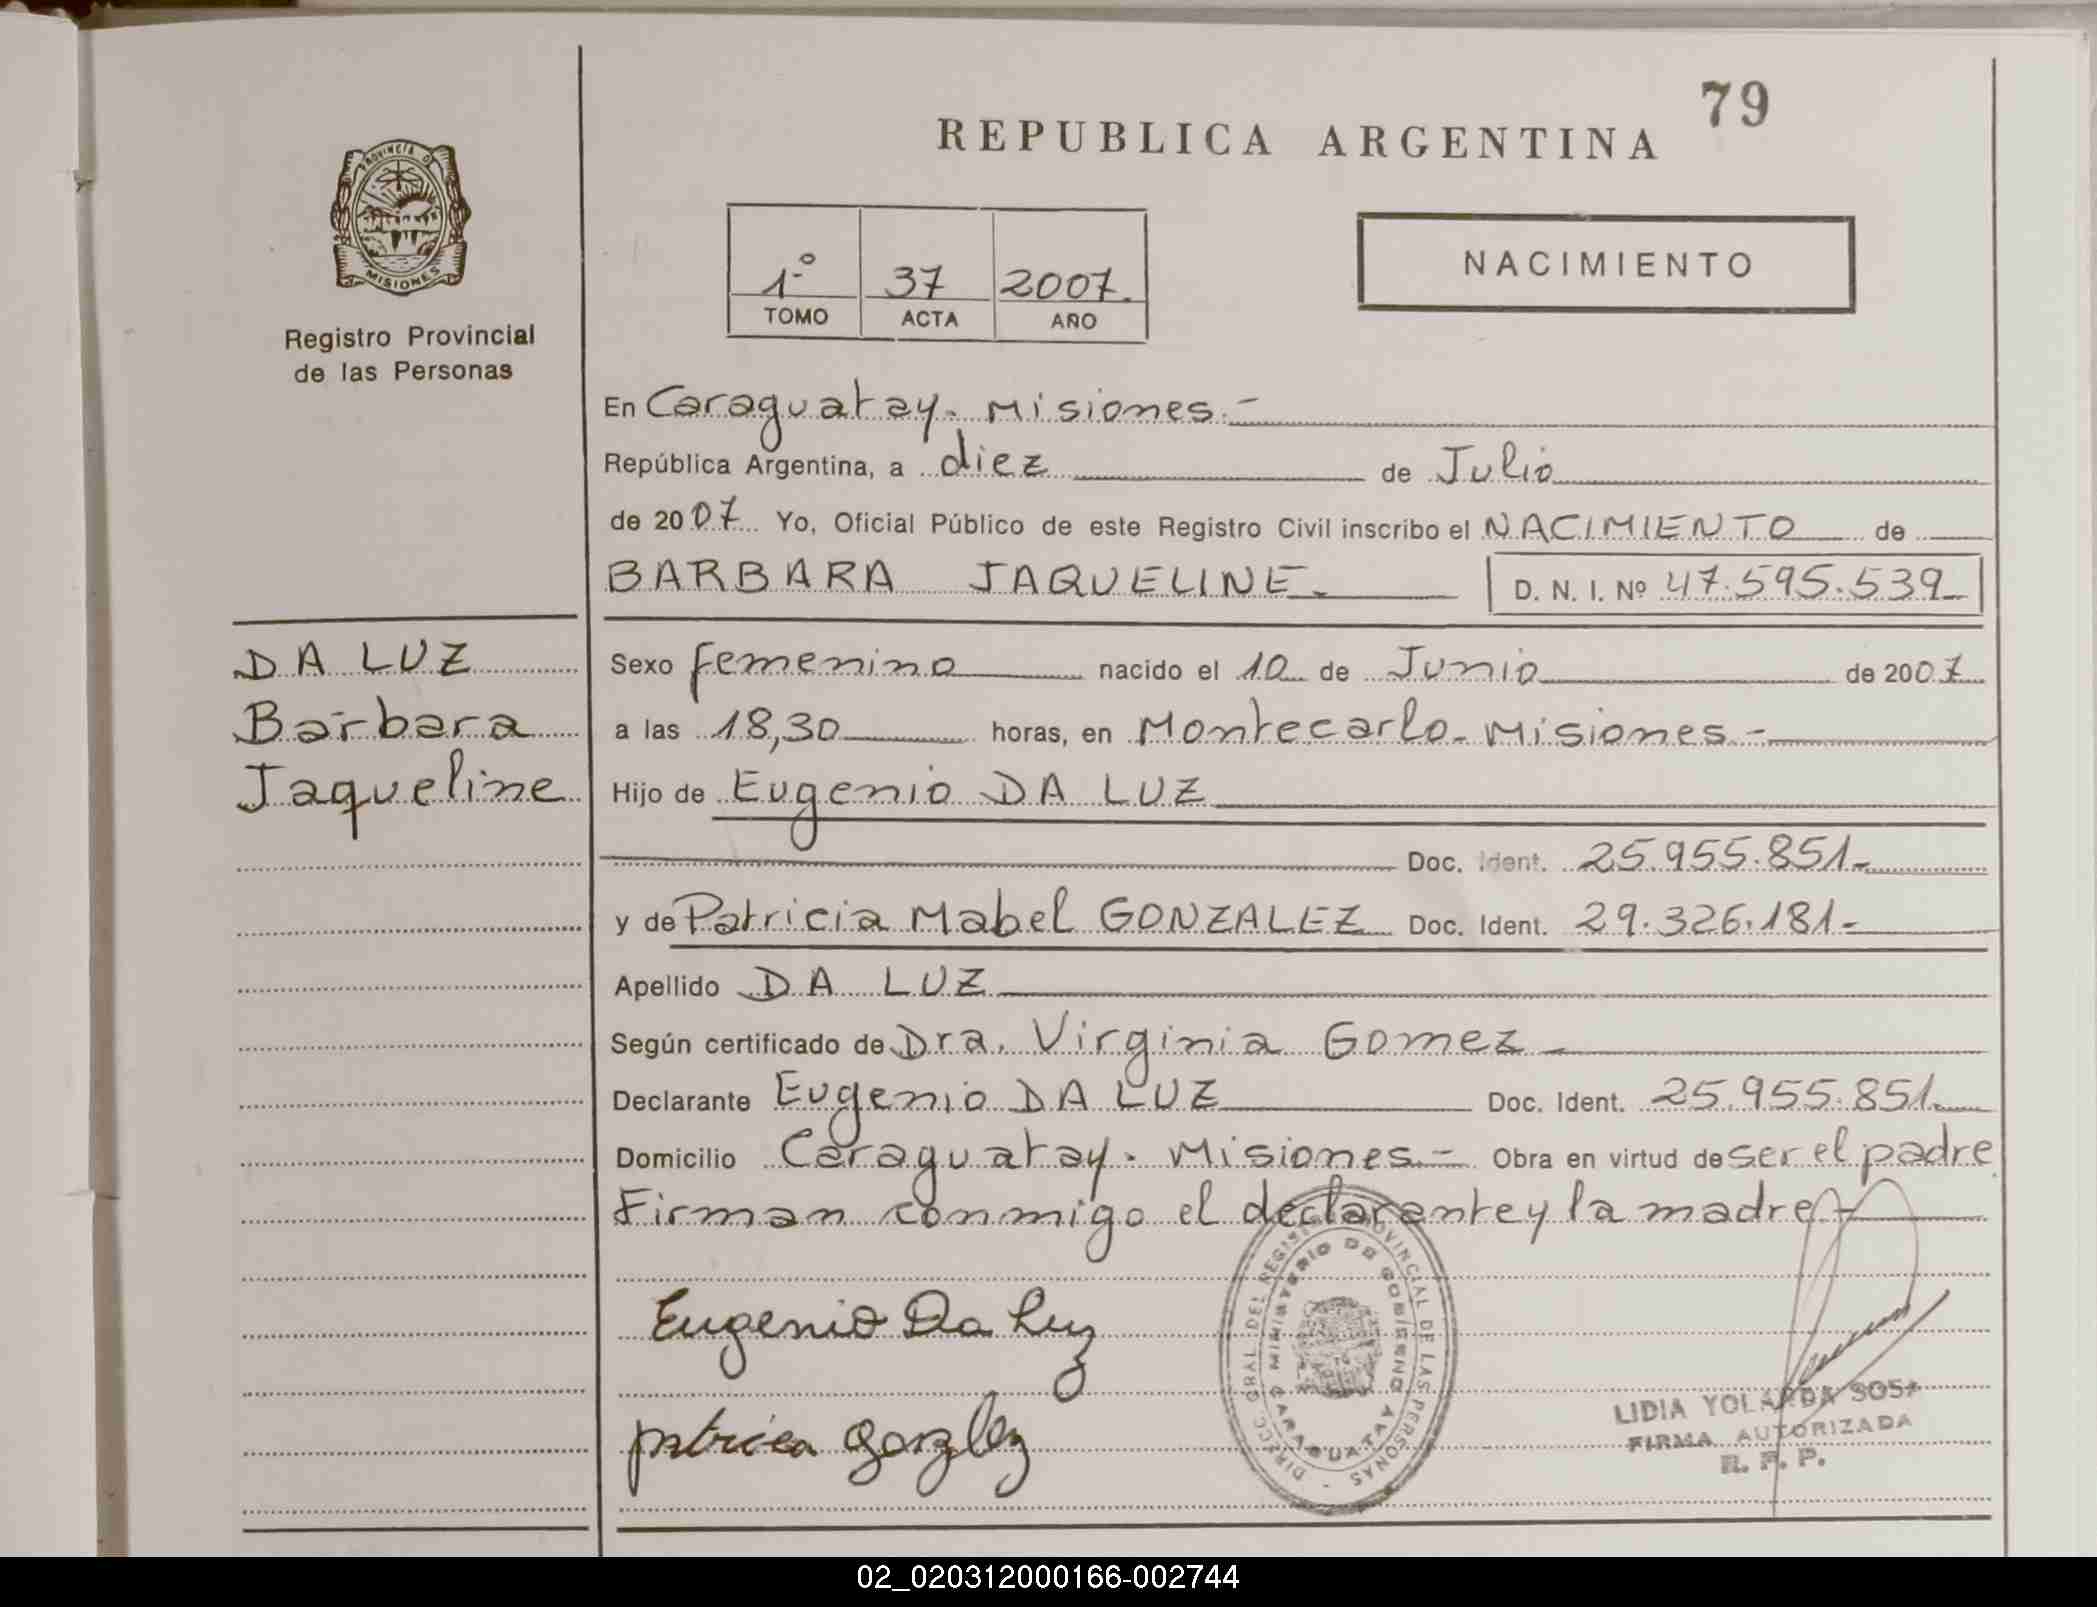 79
REPUBLICA ARGENTINA
PROVINCIA DE
MISIONES
Registro Provincial
de las Personas
1º 37 2007.
TOMO ACTA AÑO
NACIMIENTO
En Caraguatay. Misiones.-
República Argentina, a diez de Julio
de 2007 Yo, Oficial Público de este Registro Civil inscribo el NACIMIENTO de
BARBARA JAQUELINE. D. N. I. Nº 47.595.539
DA LUZ
Barbara
Jaqueline
Sexo femenino nacido el 10 de Junio de 2007
a las 18,30 horas, en Montecarlo. Misiones.-
Hijo de Eugenio DA LUZ
Doc. Ident. 25.955.851.-
y de Patricia Mabel GONZALEZ Doc. Ident. 29.326.181.-
Apellido DA LUZ
Según certificado de Dra. Virginia Gomez
Declarante Eugenio DA LUZ Doc. Ident. 25.955.851.
Domicilio Caraguatay. Misiones.- Obra en virtud de ser el padre
Firman conmigo el declarante y la madre.-
Eugenio Da Luz
patricia gonzlez
DIRECC. GRAL. DEL REGISTRO PROVINCIAL DE LAS PERSONAS
MINISTERIO DE GOBIERNO
CARAGUATAY
LIDIA YOLANDA SOSA
FIRMA AUTORIZADA
R. P. P.
02_020312000166-002744